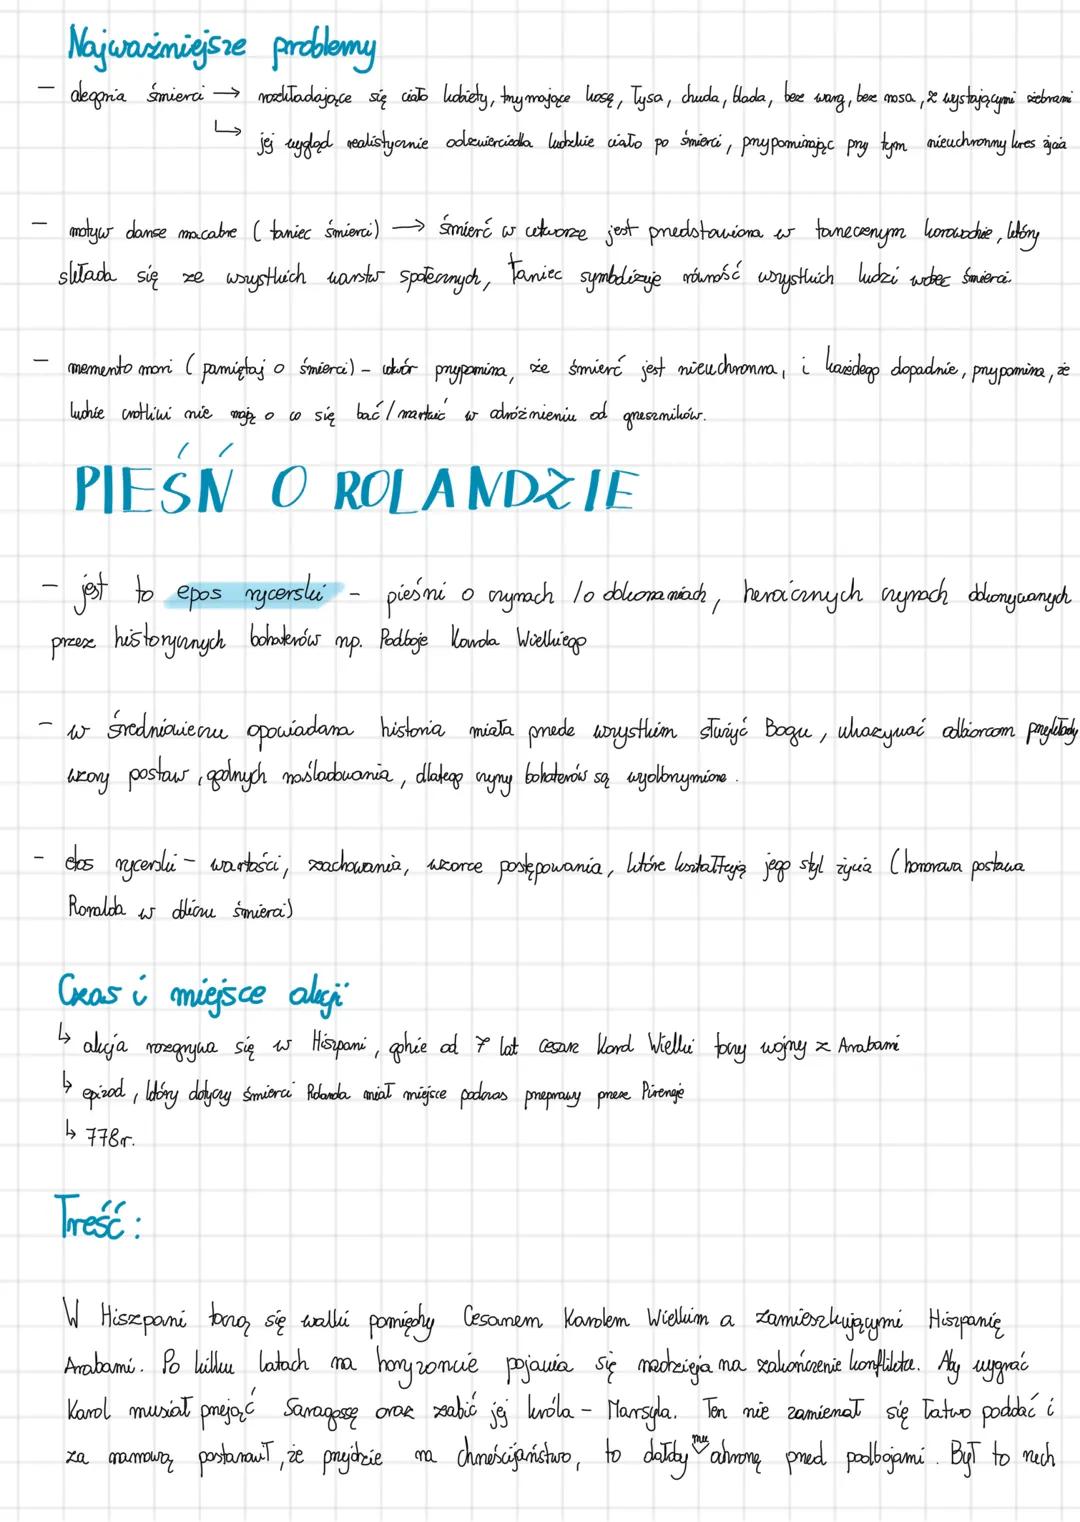 Najważniejsze problemy
- alegoria śmierci → rozkładające się ciało kobiety, trzymające kosę, łysa, chuda, blada, bez warg, bez nosa, z wystającymi żebrami
↳ jej wygląd realistycznie odzwierciedla ludzkie ciało po śmierci, przypominając przy tym nieuchronny kres życia
- motyw danse macabre (taniec śmierci) → śmierć w utworze jest przedstawiona w tanecznym korowodzie, który
składa się ze wszystkich warstw społecznych, Taniec symbolizuje równość wszystkich ludzi wobec śmierci.
- memento mori (pamiętaj o śmierci) - utwór przypomina, że śmierć jest nieuchronna, i każdego dopadnie, przypomina, że
ludzie cnotliwi nie mają o co się bać/martwić w odróżnieniu od grzeszników.
PIEŚŃ O ROLANDZIE
- jest to epos rycerski - pieśni o czynach /o dokonaniach, heroicznych czynach dokonywanych
przez historycznych bohaterów np. Podboje Karola Wielkiego
- w średniowieczu opowiadana historia miała przede wszystkim służyć Bogu, ukazywać odbiorcom przykłady
wzory postaw, godnych naśladowania, dlatego czyny bohaterów są wyolbrzymione.
- etos rycerski - wartości, zachowania, wzorce postępowania, które kształtują jego styl życia (honorowa postawa
Ronalda w obliczu śmierci)
Czas i miejsce akcji
↳ akcja rozegrywa się w Hiszpani, gdzie od 7 lat cesarz Karol Wielki toczy wojny z Arabami
↳ epizod, który dotyczy śmierci Rolanda miał miejsce podczas przeprawy przez Pireneje
↳ 778r.
Treść:
W Hiszpani toczą się walki pomiędzy Cesarzem Karolem Wielkim a zamieszkującymi Hiszpanię
Arabami. Po kilku latach na horyzoncie pojawia się nadzieja na zakończenie konfliktu. Aby wygrać
Karol musiał przejąć Saragossę oraz zabić jej króla - Marsyla. Ten nie zamierzał się łatwo poddać i
za namową postanawił, że przyjdzie na chrześcijaństwo, to dałoby mu ochronę przed podbojami. Był to ruch